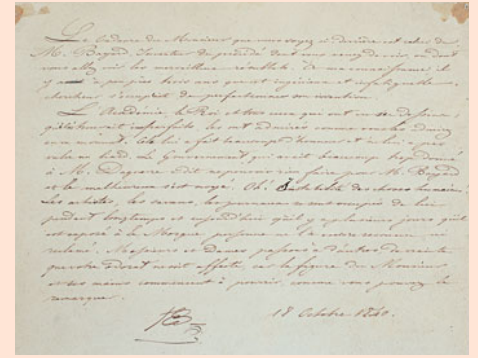 Le cadavre du Monsieur que vous voyez ci-derrière est celui de
M. Bayard, inventeur du procédé dont vous venez de voir, ou dont
vous allez voir les merveilleux résultats. À ma connaissance, il
y a à peu près trois ans que cet ingénieux et infatigable
chercheur s'occupait de perfectionner son invention.
L'Académie, le Roi et tous ceux qui ont vu ses dessins,
que lui trouvait imparfaits, les ont admirés comme vous les admirez
en ce moment. Cela lui a fait beaucoup d'honneur et ne lui a pas
valu un liard. Le Gouvernement qui avait beaucoup trop donné
à M. Daguerre a dit ne pouvoir rien faire pour M. Bayard
et le malheureux s'est noyé. Oh! Instabilité des choses humaines!
Les artistes, les savans, les journaux se sont occupés de lui
pendant longtemps et aujourd'hui qu'il y a plusieurs jours qu'il
est exposé à la Morgue, personne ne l'a encore reconnu, ni
réclamé. Messieurs et Dames, passons à d'autres, de crainte
que votre odorat ne soit affecté, car la figure du Monsieur
et ses mains commencent à pourrir, comme vous pouvez le
remarquer.
HB
18 Octobre 1840.